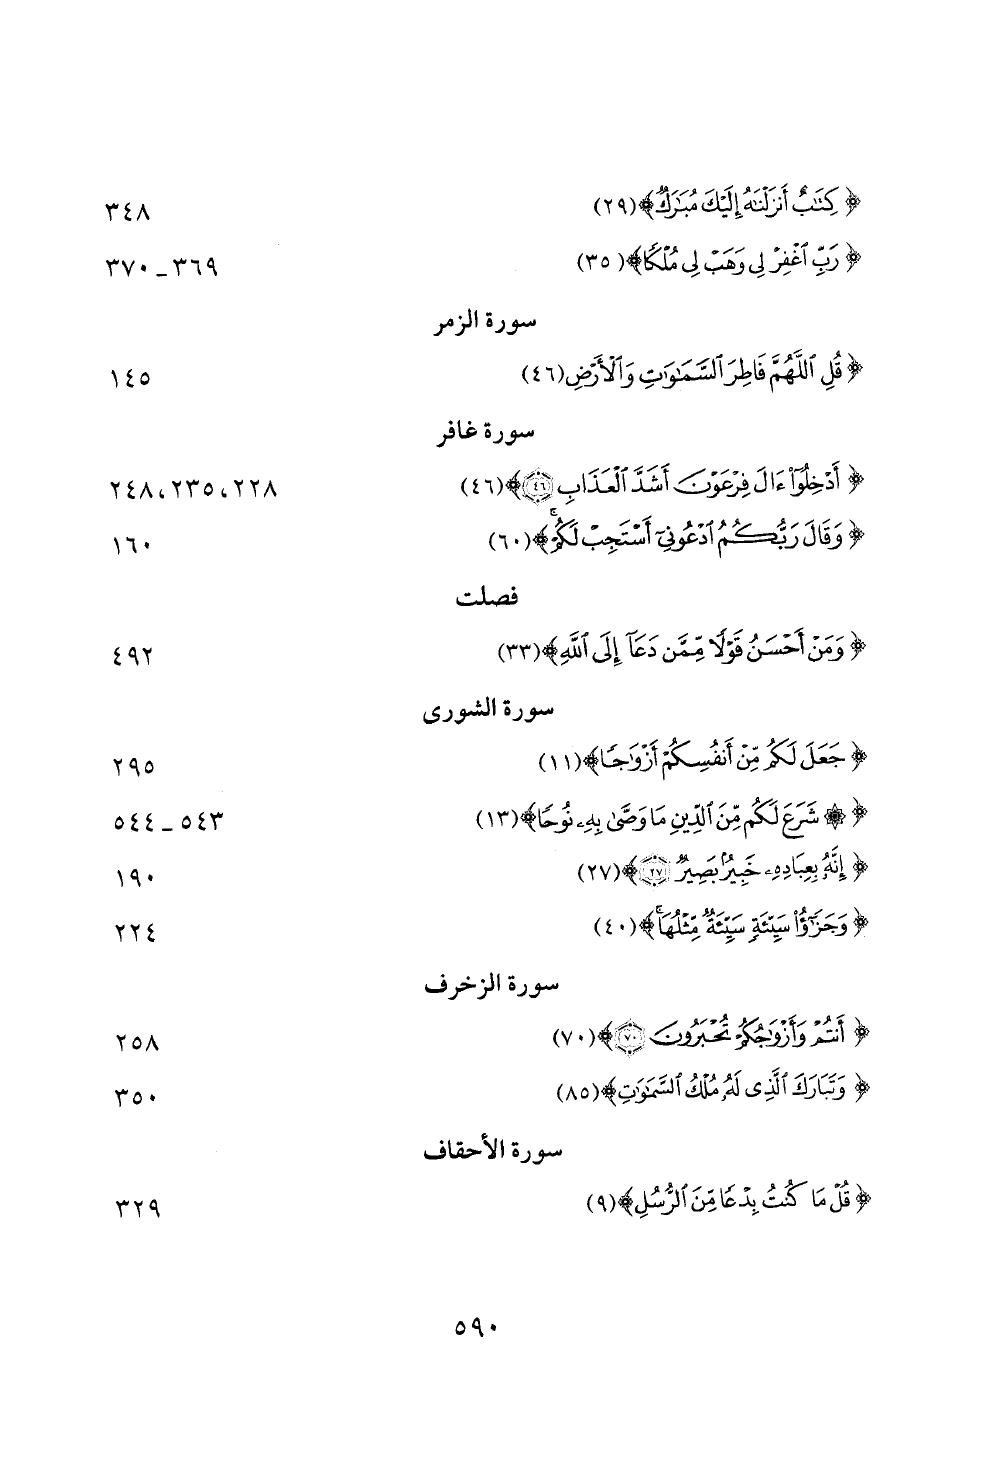 ﴿ كِتَٰبٌ أَنزَلْنَٰهُ إِلَيْكَ مُبَٰرَكٌ﴾ (٢٩) ٣٤٨
﴿ رَبِّ ٱغْفِرْ لِى وَهَبْ لِى مُلْكًا﴾ (٣٥) ٣٦٩ ـ ٣٧٠
سورة الزمر
﴿ قُلِ ٱللَّهُمَّ فَاطِرَ ٱلسَّمَٰوَٰتِ وَٱلْأَرْضِ (٤٦) ١٤٥
سورة غافر
﴿ أَدْخِلُوٓا۟ ءَالَ فِرْعَوْنَ أَشَدَّ ٱلْعَذَابِ ٤٦﴾ (٤٦) ٢٢٨، ٢٣٥، ٢٤٨
﴿ وَقَالَ رَبُّكُمُ ٱدْعُونِىٓ أَسْتَجِبْ لَكُمْ ۚ﴾ (٦٠) ١٦٠
فصلت
﴿ وَمَنْ أَحْسَنُ قَوْلًا مِّمَّن دَعَآ إِلَى ٱللَّهِ﴾ (٣٣) ٤٩٢
سورة الشورى
﴿ جَعَلَ لَكُم مِّنْ أَنفُسِكُمْ أَزْوَٰجًا﴾ (١١) ٢٩٥
﴿ ۞ شَرَعَ لَكُم مِّنَ ٱلدِّينِ مَا وَصَّىٰ بِهِۦ نُوحًا﴾ (١٣) ٥٤٣ ـ ٥٤٤
﴿ إِنَّهُۥ بِعِبَادِهِۦ خَبِيرٌۢ بَصِيرٌ ٢٧﴾ (٢٧) ١٩٠
﴿ وَجَزَٰٓؤُا۟ سَيِّئَةٍ سَيِّئَةٌ مِّثْلُهَا ۖ﴾ (٤٠) ٢٢٤
سورة الزخرف
﴿ أَنتُمْ وَأَزْوَٰجُكُمْ تُحْبَرُونَ ٧٠﴾ (٧٠) ٢٥٨
﴿ وَتَبَارَكَ ٱلَّذِى لَهُۥ مُلْكُ ٱلسَّمَٰوَٰتِ﴾ (٨٥) ٣٥٠
سورة الأحقاف
﴿ قُلْ مَا كُنتُ بِدْعًا مِّنَ ٱلرُّسُلِ﴾ (٩) ٣٢٩
٥٩٠